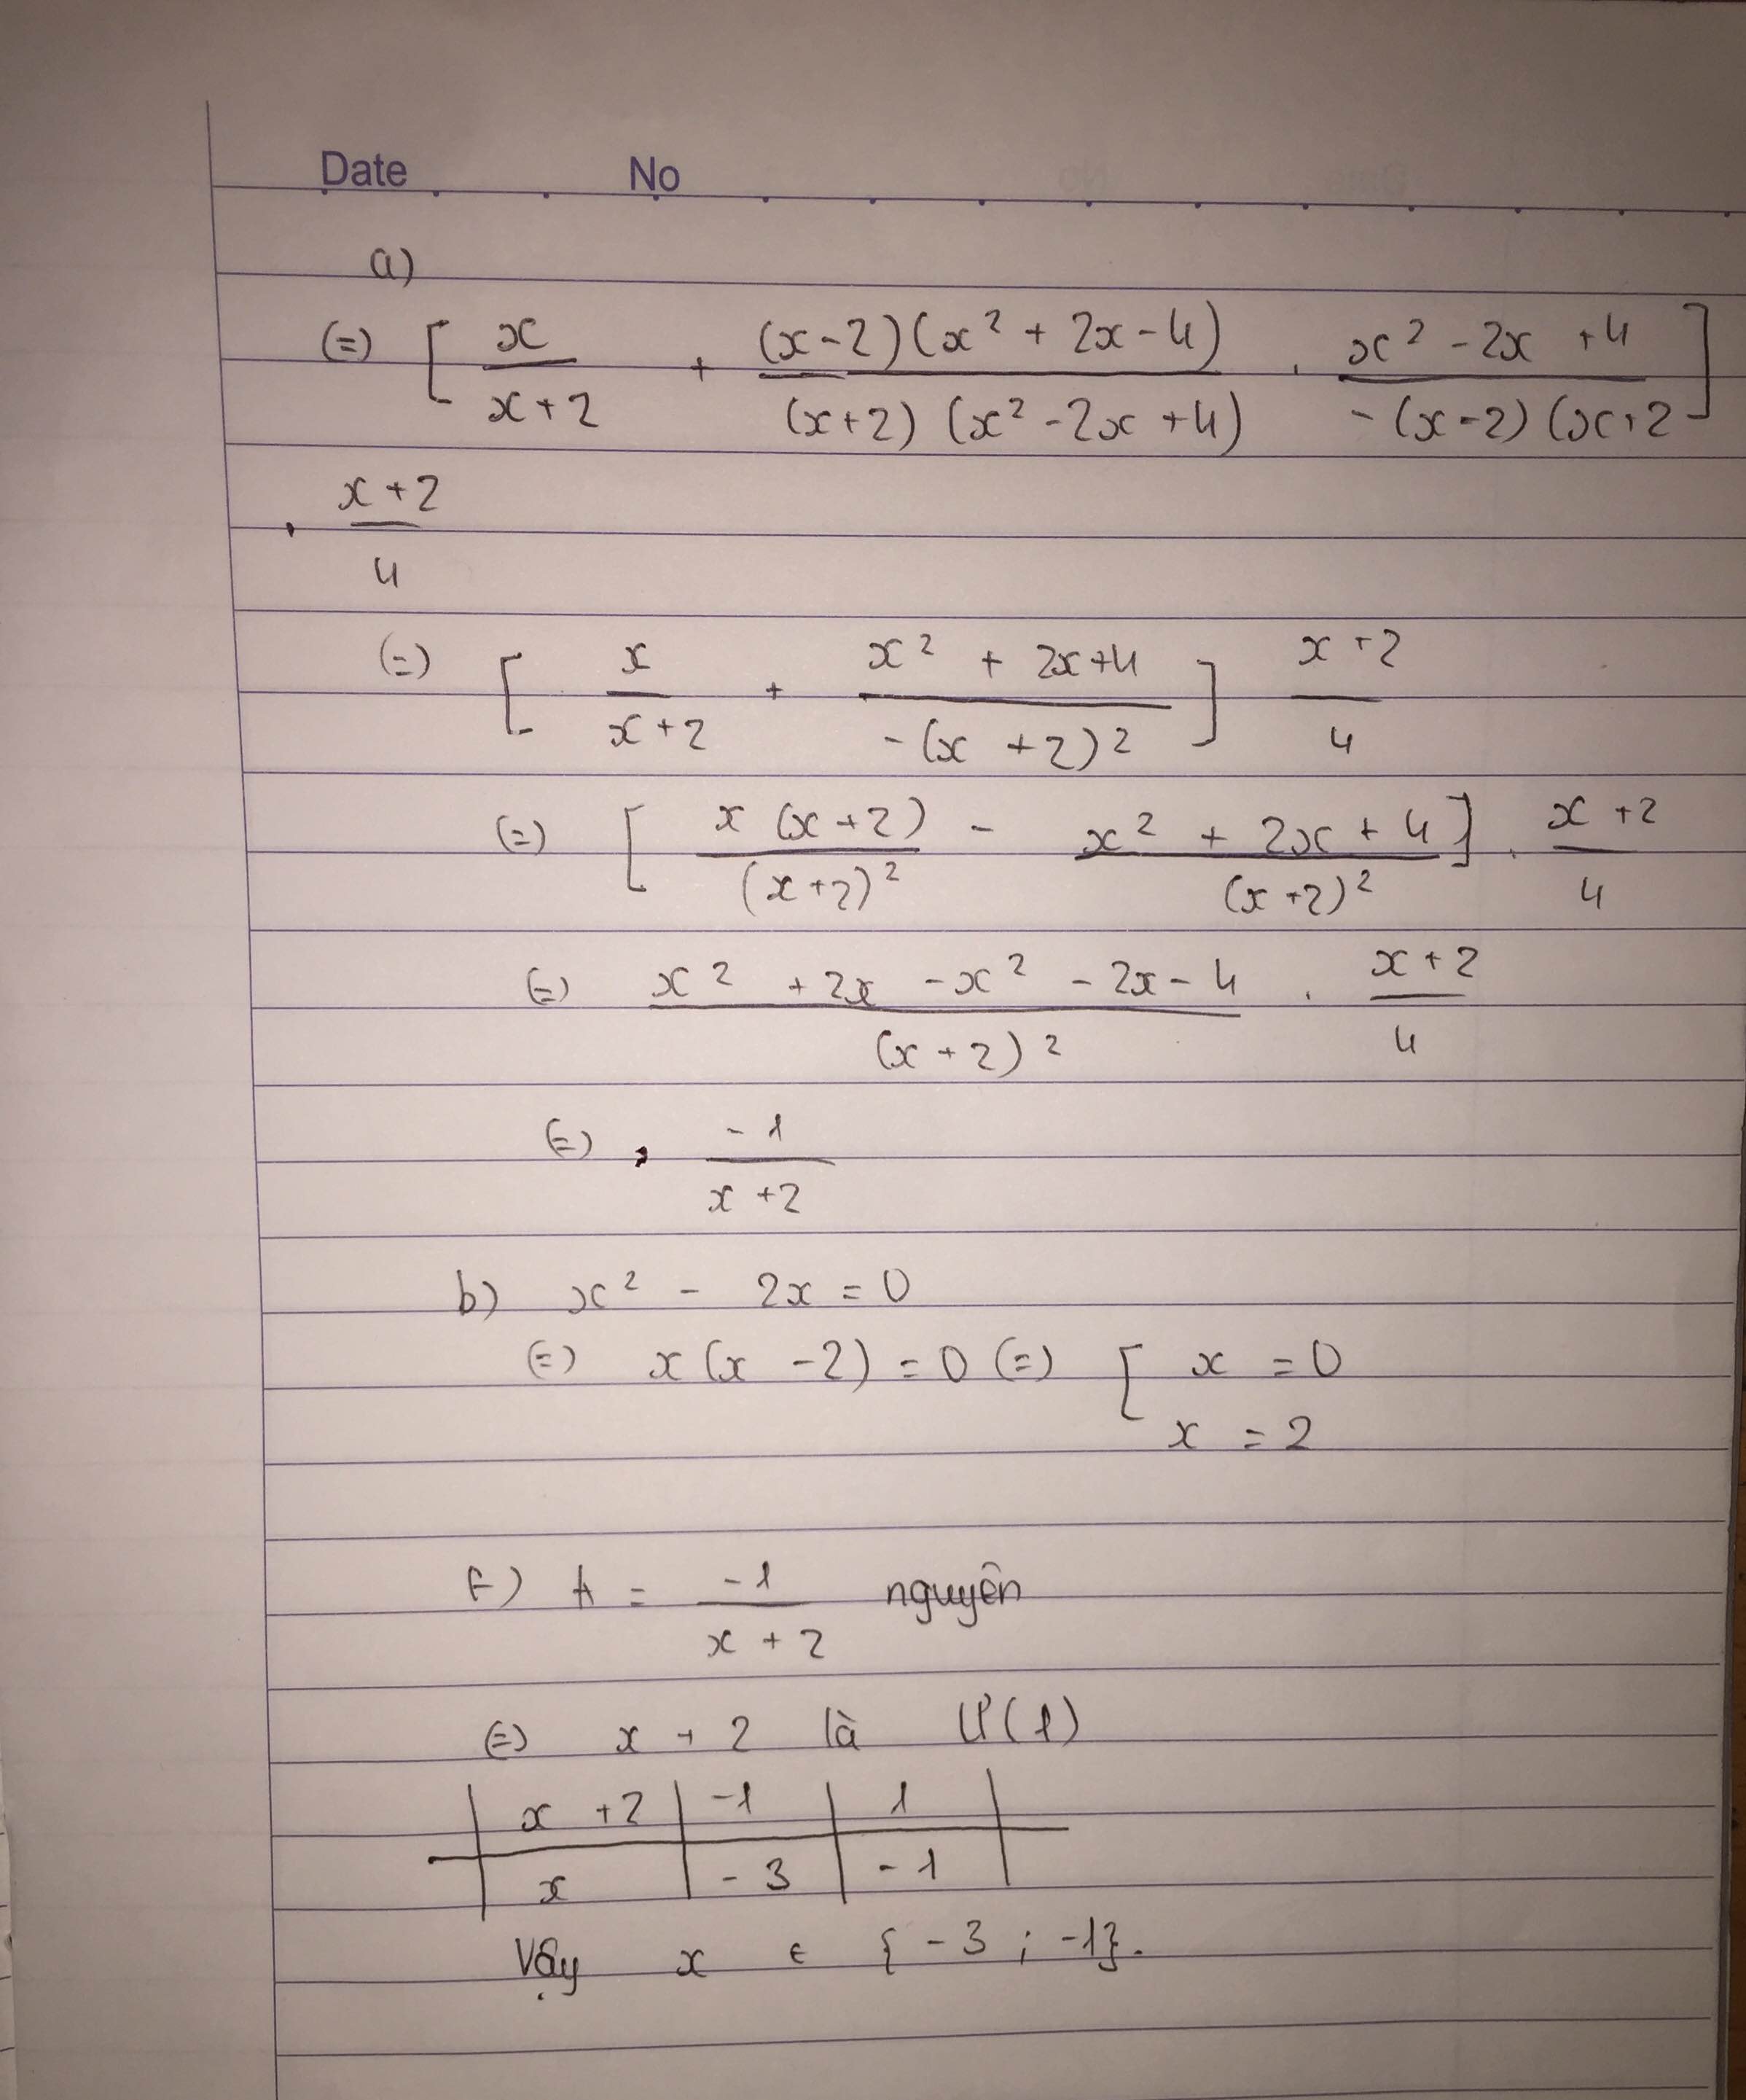 Date No
a)
(=) [ x/(x+2) + (x-2)(x² + 2x - 4)/((x+2)(x² - 2x + 4)) . (x² - 2x + 4)/(-(x-2)(x+2) ]
. (x+2)/4
(=) [ x/(x+2) + (x² + 2x+4)/(-(x+2)²) ] (x+2)/4
(=) [ x(x+2)/(x+2)² - (x² + 2x + 4)/(x+2)² ] . (x+2)/4
(=) (x² + 2x - x² - 2x - 4)/(x+2)² . (x+2)/4
(=) -1/(x+2)
b) x² - 2x = 0
(=) x(x - 2) = 0 (=) [ x = 0
x = 2
F) A = -1/(x + 2) nguyên
(=) x + 2 là Ư(1)
x +2 | -1 | 1
x | -3 | -1
Vậy x ∈ { -3 ; -1}.